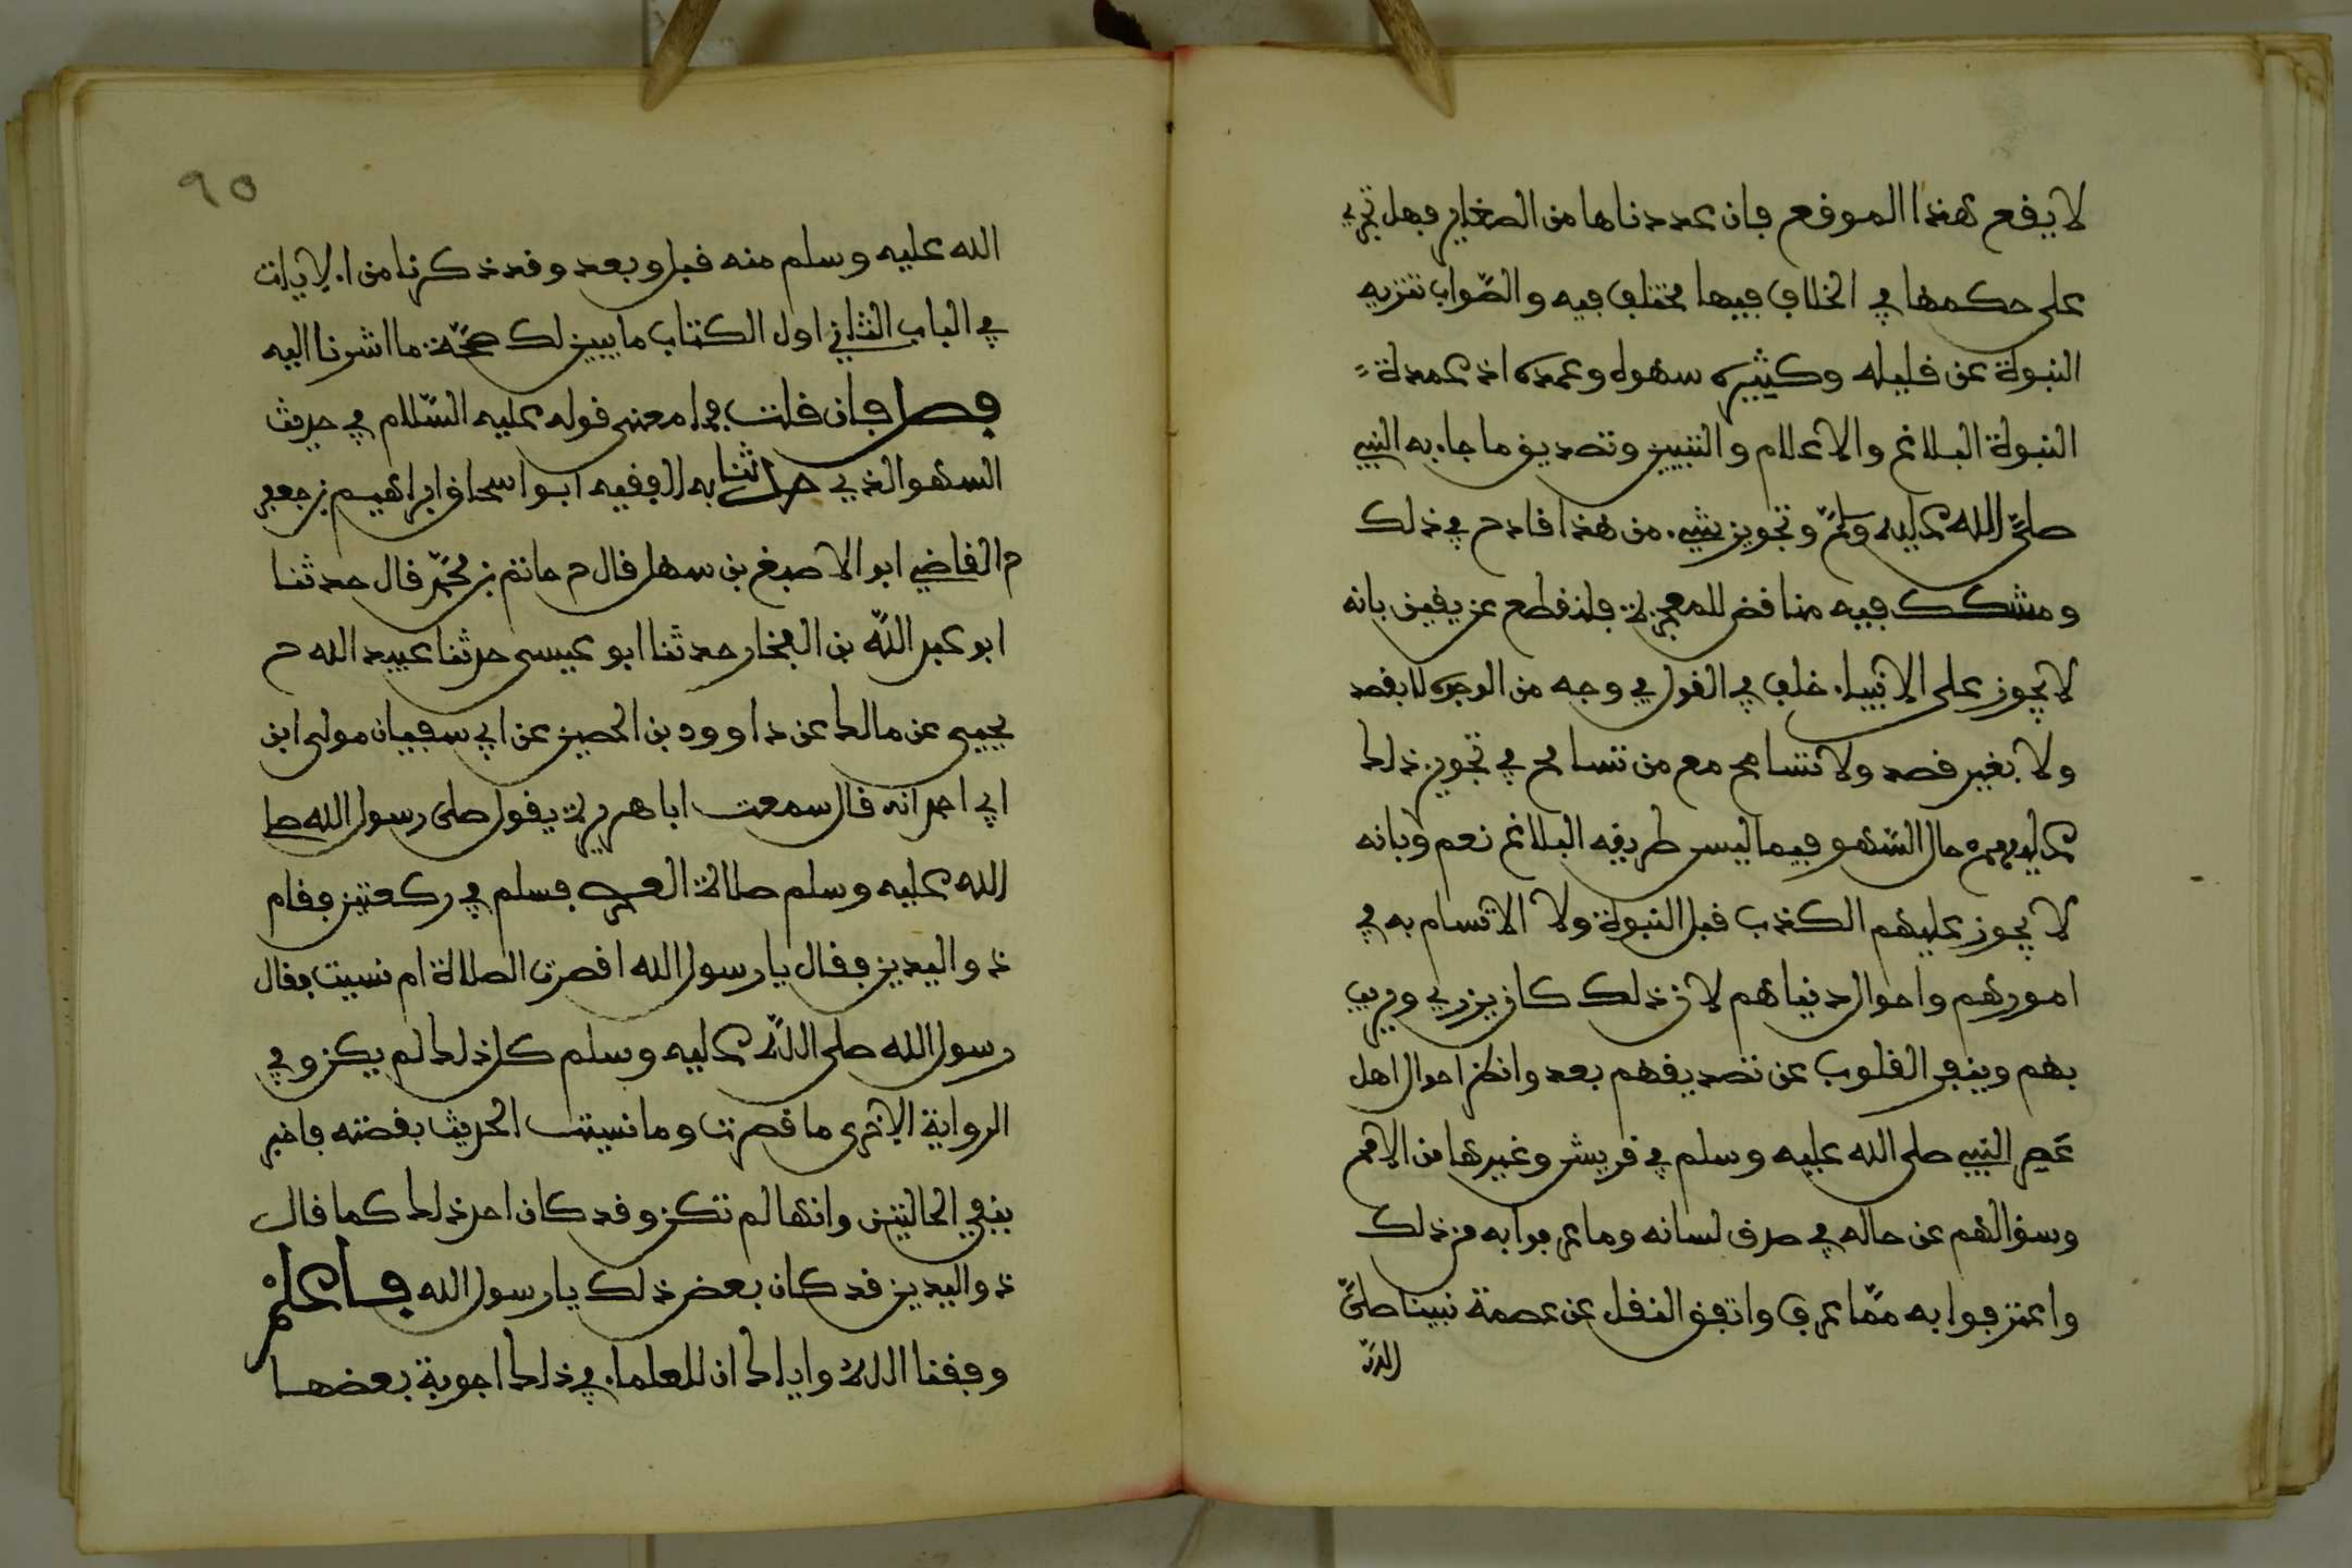 لا يقع هذا الموقع فان عددناها من الصغاير فهل تجري
على حكمها في الخلاف فيها مختلف فيه والصّواب تنزيه
النبوة عن قليله وكثيره سهوه وعمده اذ عمدة
النبوة البلاغ والاعلام والتبيين وتصديق ما جاء به النبي
صلّى الله عليه وسلّم وتجويز شيء من هذا قادح في ذلك
ومشكك فيه مناقض للمعجزة فلنقطع عن يقين بانه
لا يجوز على الانبياء خلف في القول في وجه من الوجوه لا بقصد
ولا بغير قصد ولا نتسامح مع من تسامح في تجويز ذلك
عليهم حال السّهو فيما ليس طريقه البلاغ نعم وبانه
لا يجوز عليهم الكذب قبل النبوة ولا الاتسام به في
امورهم واحوال دنياهم لان ذلك كان يزري ويريب
بهم وينفر القلوب عن تصديقهم بعد وانظر احوال اهل
عصر النبي صلى الله عليه وسلم في قريش وغيرها من الامم
وسؤالهم عن حاله في صدق لسانه وما عرفوا به من ذلك
واعترفوا به ممّا عرف واتفق النقل عن عصمة نبينا صلّى
الله
٩٥
الله عليه وسلم منه قبل وبعد وقد ذكرنا من الايات
في الباب الثاني اول الكتاب ما يبين لك صحّة ما اشرنا اليه
فصل فان قلت فما معنى قوله عليه السّلام في حديث
السهو الذي حدثنا به الفقيه ابو اسحاق ابراهيم بن جعفر
ح القاضي ابو الاصبغ بن سهل قال ح حاتم بن محمّد قال حدثنا
ابو عبد اللّه بن الفخار حدثنا ابو عيسى حدثنا عبيد الله ح
يحيى عن مالك عن داوود بن الحصين عن ابي سفيان مولى ابن
ابي احمد انه قال سمعت ابا هريرة يقول صلى رسول الله صلى
الله عليه وسلم صلاة العصر فسلم في ركعتين فقام
ذو اليدين فقال يا رسول الله اقصرت الصلاة ام نسيت فقال
رسول الله صلى اللّه عليه وسلم كل ذلك لم يكن وفي
الرواية الاخرى ما قصرت وما نسيت الحديث بقصته فاخبر
بنفي الحالتين وانها لم تكن وقد كان احد ذلك كما قال
ذو اليدين قد كان بعض ذلك يا رسول الله فاعلمْ
وفقنا الله واياك ان للعلماء في ذلك اجوبة بعضها